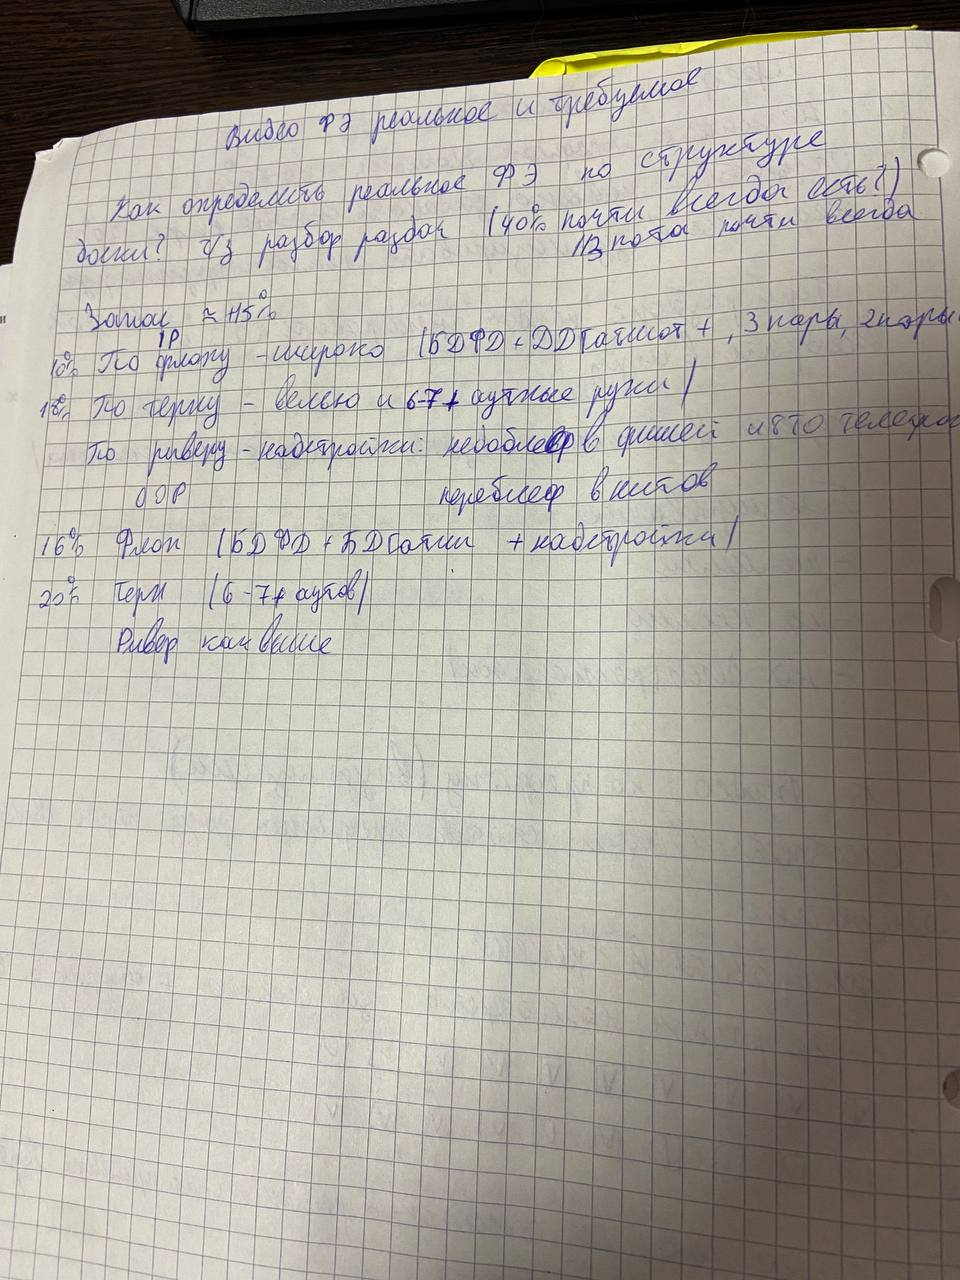 Видео ФЭ реальное и требуемое
Как определить реальное ФЭ по структуре
доски? Из разбор раздач (40% почти всегда есть?)
1/3 пота почти всегда
Запас ≈ +15%
IP
10% По флопу - широко (БДФД + ДДГатшот +, 3 пары, 2 пары
18% По терну - велью и 6-7+ аутные руки)
По риверу - надстройки: недоблеф в фишей и в то
ООР переблеф в китов
16% Флоп (БДФД + БДГатши + надстройки)
20% Терн (6-7+ аутов)
Ривер как выше